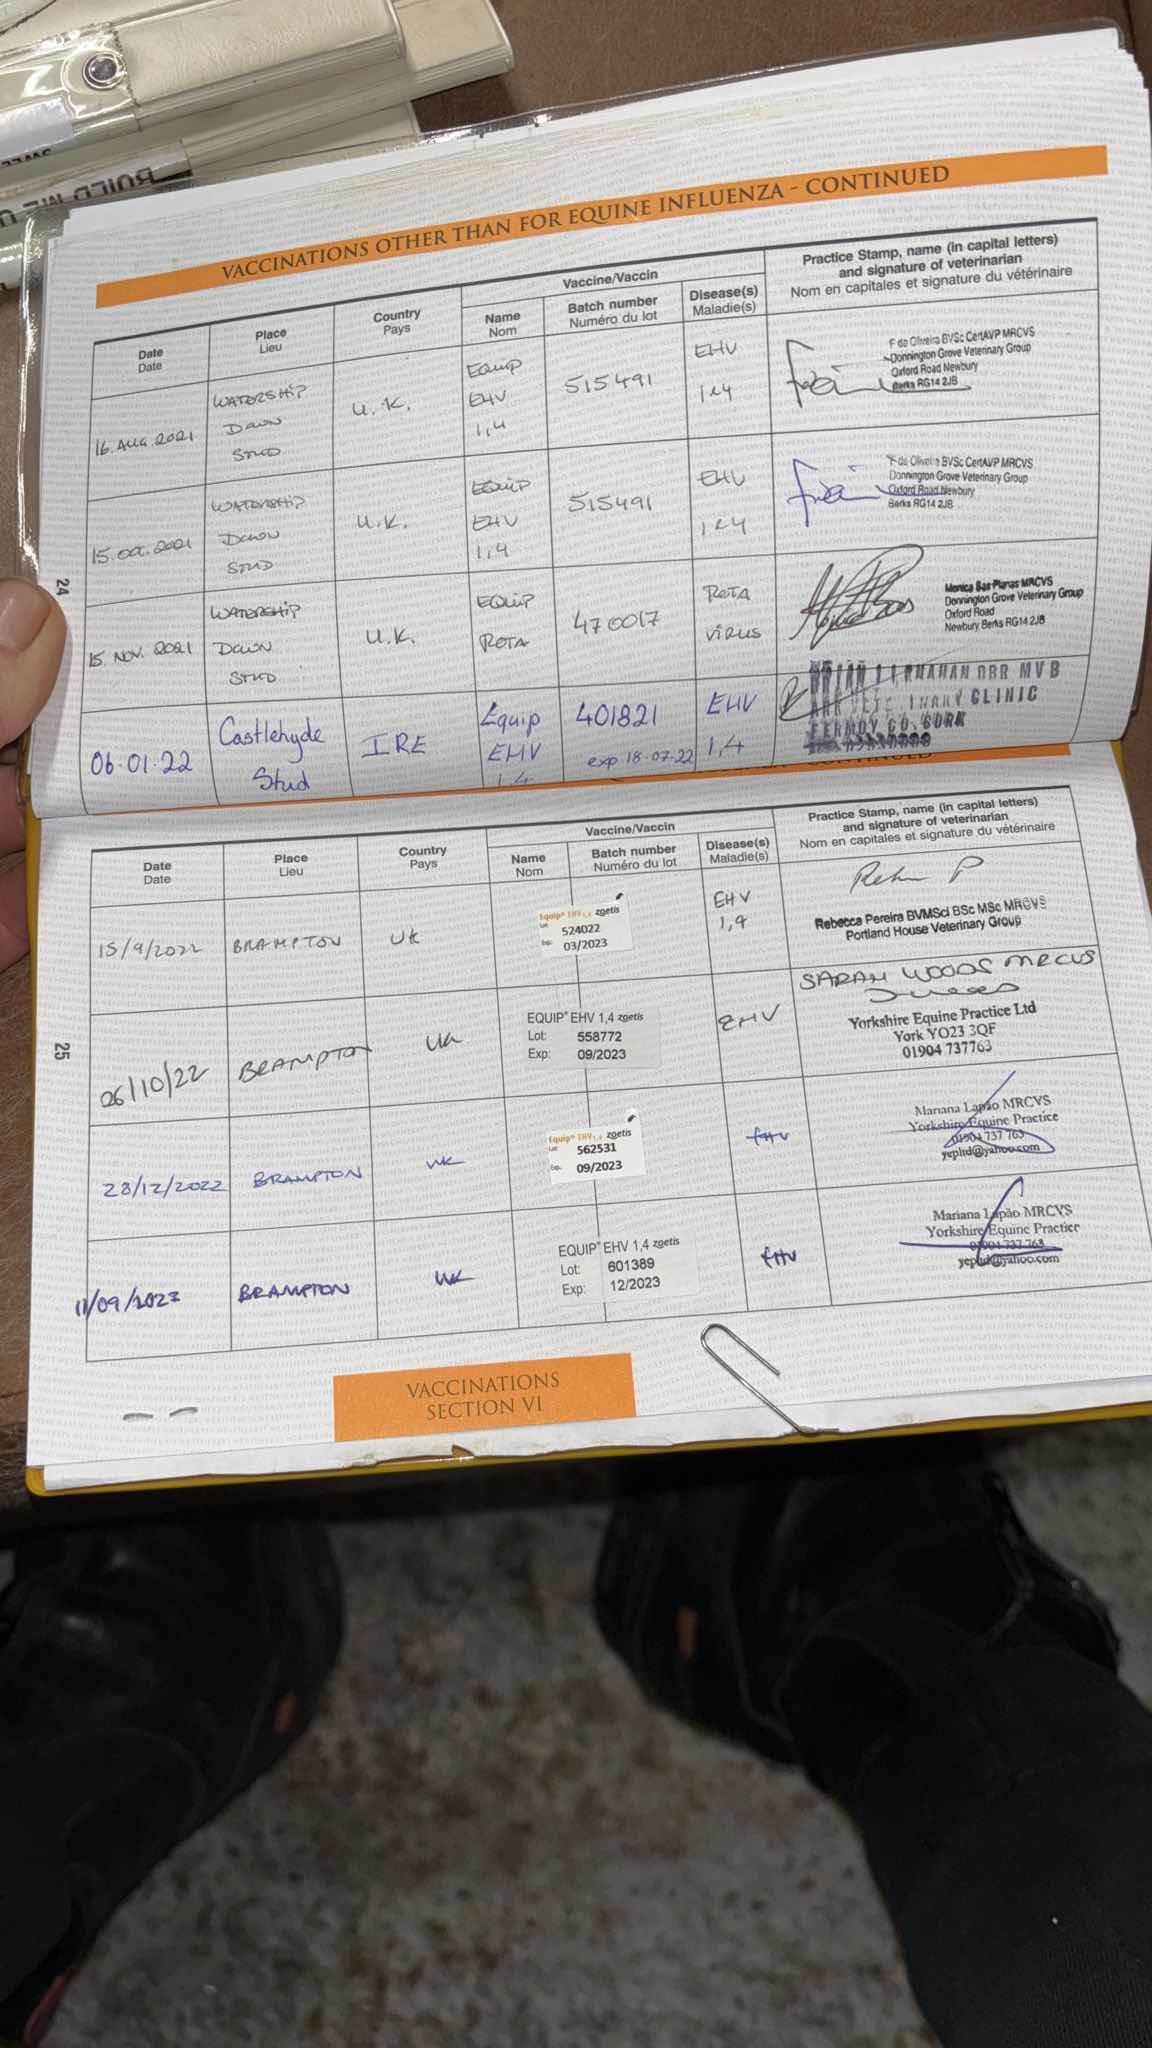 VACCINATIONS OTHER THAN FOR EQUINE INFLUENZA - CONTINUED
Date
Date
Place
Lieu
Country
Pays
Vaccine/Vaccin
Name
Nom
Batch number
Numéro du lot
Disease(s)
Maladie(s)
Practice Stamp, name (in capital letters)
and signature of veterinarian
Nom en capitales et signature du vétérinaire
16. AUG. 2021
WATERSHIP
DOWN
STUD
U.K.
EQUIP
EHV
1,4
515491
EHV
1&4
F de Oliveira BVSc CertAVP MRCVS
Donnington Grove Veterinary Group
Oxford Road Newbury
Berks RG14 2JB
15. OCT. 2021
WATERSHIP
DOWN
STUD
U.K.
EQUIP
EHV
1,4
515491
EHV
1&4
F de Oliveira BVSc CertAVP MRCVS
Donnington Grove Veterinary Group
Oxford Road Newbury
Berks RG14 2JB
15. NOV. 2021
WATERSHIP
DOWN
STUD
U.K.
EQUIP
ROTA
470017
ROTA
VIRUS
Monica Bas Planas MRCVS
Donnington Grove Veterinary Group
Oxford Road
Newbury Berks RG14 2JB
06.01.22
Castlehyde
Stud
IRE
Equip
EHV
1,4
401821
exp 18.07.22
EHV
1,4
MVB
CLINIC
FERMOY CO. CORK
24
Date
Date
Place
Lieu
Country
Pays
Vaccine/Vaccin
Name
Nom
Batch number
Numéro du lot
Disease(s)
Maladie(s)
Practice Stamp, name (in capital letters)
and signature of veterinarian
Nom en capitales et signature du vétérinaire
15/9/2022
BRAMPTON
UK
Equip® EHV 1,4 zoetis
Lot 524022
Exp. 03/2023
EHV
1,4
Rebecca Pereira BVMSci BSc MSc MRCVS
Portland House Veterinary Group
26/10/22
BRAMPTON
UK
EQUIP® EHV 1,4 zoetis
Lot: 558772
Exp: 09/2023
EHV
SARAH WOODS MRCVS
Yorkshire Equine Practice Ltd
York YO23 3QF
01904 737763
28/12/2022
BRAMPTON
UK
Equip® EHV 1,4 zoetis
Lot 562531
Exp. 09/2023
EHV
Mariana Lapão MRCVS
Yorkshire Equine Practice
01904 737 763
yepltd@yahoo.com
11/09/2023
BRAMPTON
UK
EQUIP® EHV 1,4 zoetis
Lot: 601389
Exp: 12/2023
EHV
Mariana Lapão MRCVS
Yorkshire Equine Practice
01904 737 763
yepltd@yahoo.com
25
VACCINATIONS
SECTION VI